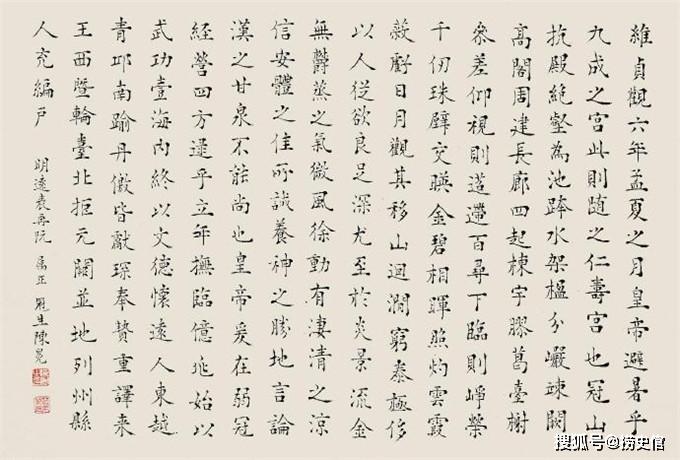 維貞觀六年孟夏之月皇帝避暑乎
九成之宮此則隨之仁壽宮也冠山
抗殿絕壑為池跨水架楹分巖竦闕
高閣周建長廊四起棟宇膠葛臺榭
參差仰視則迢遰百尋下臨則崢嶸
千仞珠璧交暎金碧相暉照灼雲霞
蔽虧日月觀其移山迴澗窮泰極侈
以人從欲良足深尤至於炎景流金
無欝蒸之氣微風徐動有淒清之涼
信安體之佳所誠養神之勝地言論
漢之甘泉不能尚也皇帝爰在弱冠
經營四方逮乎立年撫臨億兆始以
武功壹海內終以文德懷遠人東越
青邱南踰丹儌皆獻琛奉贄重譯來
王西暨輪臺北拒元闕並地列州縣
人充編戶
明遠 屬正 生陳冕
搜狐号@捞史官